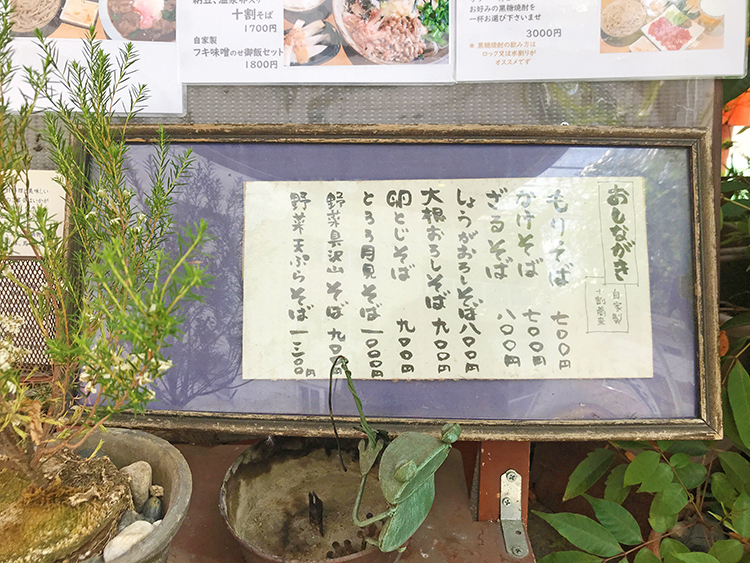 十割そば
1700円
自家製
フキ味噌のせ御飯セット
1800円
お好みの黒糖焼酎を
一杯お選び下さいませ
3000円
※黒糖焼酎の飲み方は
ロック又は水割りが
オススメです
おしながき
自家製
十割蕎麦
もりそば 七〇〇円
かけそば 七〇〇円
ざるそば 八〇〇円
しょうがおろしそば 八〇〇円
大根おろしそば 九〇〇円
卵とじそば 九〇〇円
とろろ月見そば 一〇〇〇円
野菜具沢山そば 九〇〇円
野菜天ぷらそば 一二〇〇円